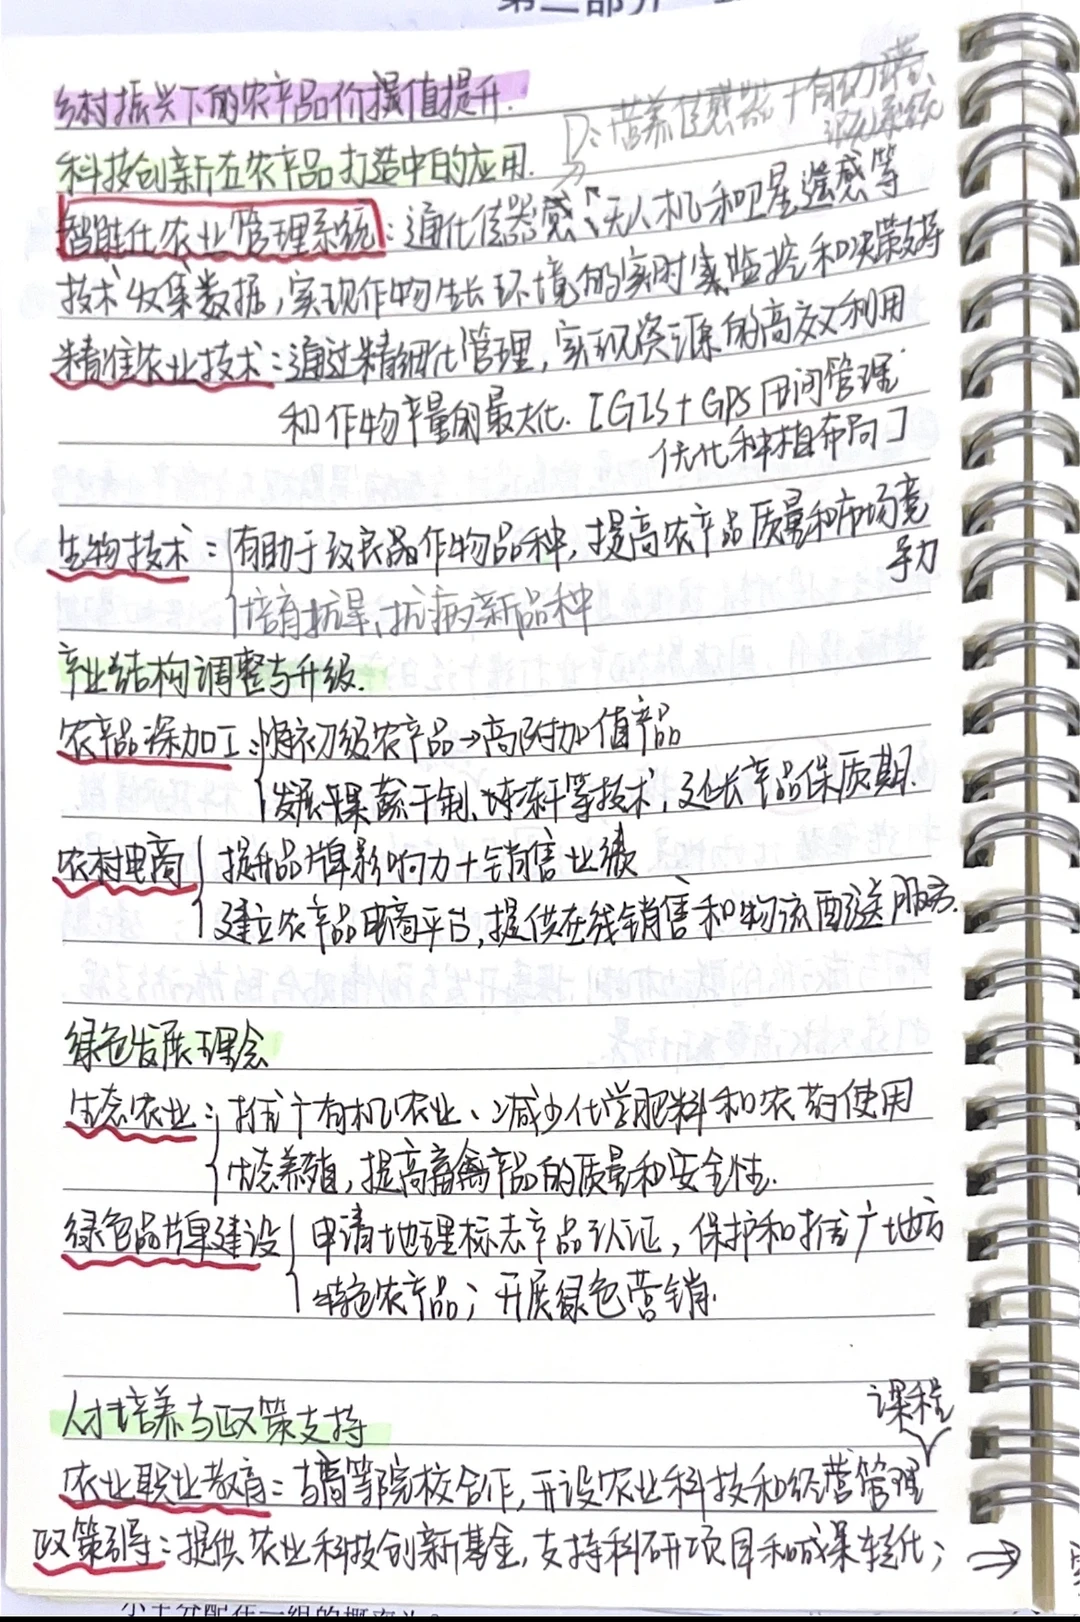 乡村振兴下的农产品价值提升.
营养传感器+有机
科技创新在农产品打造中的应用.
智能化农业管理系统:通化传器感、无人机和卫星遥感等
技术收集数据,实现作物生长环境的实时监控和决策支持
精准农业技术:通过精细化管理,实现资源的高效利用
和作物产量的最大化.[GIS+GPS田间管理
优化种植布局]
生物技术:有助于改良品作物品种,提高农产品质量和市场竞
争力
培育抗旱、抗病新品种
产业结构调整与升级.
农产品深加工:将初级农产品→高附加值产品
发展果蔬干制、冻干等技术,延长产品保质期.
农村电商 提升品牌影响力+销售业绩
建立农产品电商平台,提供在线销售和物流配送服务.
绿色发展理念
生态农业:推广有机农业、减少化学肥料和农药使用
生态养殖,提高畜禽产品的质量和安全性.
绿色品牌建设 申请地理标志产品认证,保护和推广地方
特色农产品;开展绿色营销.
人才培养与政策支持
课程
农业职业教育:与高等院校合作,开设农业科技和经营管理
政策引导:提供农业科技创新基金,支持科研项目和成果转化; →